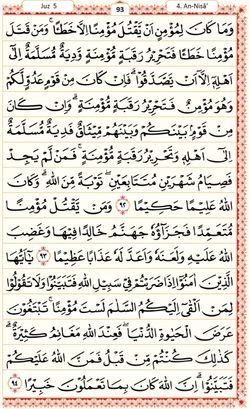 Juz 5 93 4. An-Nisā'
وَمَا كَانَ لِمُؤْمِنٍ اَنْ يَّقْتُلَ مُؤْمِنًا اِلَّا خَطَـًٔا ۚ وَمَنْ قَتَلَ
مُؤْمِنًا خَطَـًٔا فَتَحْرِيْرُ رَقَبَةٍ مُّؤْمِنَةٍ وَّدِيَةٌ مُّسَلَّمَةٌ اِلٰٓى
اَهْلِهٖٓ اِلَّآ اَنْ يَّصَّدَّقُوْا ۗ فَاِنْ كَانَ مِنْ قَوْمٍ عَدُوٍّ لَّكُمْ
وَهُوَ مُؤْمِنٌ فَتَحْرِيْرُ رَقَبَةٍ مُّؤْمِنَةٍ ۗ وَاِنْ كَانَ
مِنْ قَوْمٍۢ بَيْنَكُمْ وَبَيْنَهُمْ مِّيْثَاقٌ فَدِيَةٌ مُّسَلَّمَةٌ
اِلٰٓى اَهْلِهٖ وَتَحْرِيْرُ رَقَبَةٍ مُّؤْمِنَةٍ ۚ فَمَنْ لَّمْ يَجِدْ
فَصِيَامُ شَهْرَيْنِ مُتَتَابِعَيْنِ ۖ تَوْبَةً مِّنَ اللّٰهِ ۗ وَكَانَ
اللّٰهُ عَلِيْمًا حَكِيْمًا ٩٢ وَمَنْ يَّقْتُلْ مُؤْمِنًا
مُّتَعَمِّدًا فَجَزَاۤؤُهٗ جَهَنَّمُ خَالِدًا فِيْهَا وَغَضِبَ
اللّٰهُ عَلَيْهِ وَلَعَنَهٗ وَاَعَدَّ لَهٗ عَذَابًا عَظِيْمًا ٩٣ يٰٓاَيُّهَا
الَّذِيْنَ اٰمَنُوْٓا اِذَا ضَرَبْتُمْ فِيْ سَبِيْلِ اللّٰهِ فَتَبَيَّنُوْا وَلَا تَقُوْلُوْا
لِمَنْ اَلْقٰٓى اِلَيْكُمُ السَّلٰمَ لَسْتَ مُؤْمِنًا ۚ تَبْتَغُوْنَ
عَرَضَ الْحَيٰوةِ الدُّنْيَا ۖ فَعِنْدَ اللّٰهِ مَغَانِمُ كَثِيْرَةٌ ۗ
كَذٰلِكَ كُنْتُمْ مِّنْ قَبْلُ فَمَنَّ اللّٰهُ عَلَيْكُمْ
فَتَبَيَّنُوْا ۗ اِنَّ اللّٰهَ كَانَ بِمَا تَعْمَلُوْنَ خَبِيْرًا ٩٤